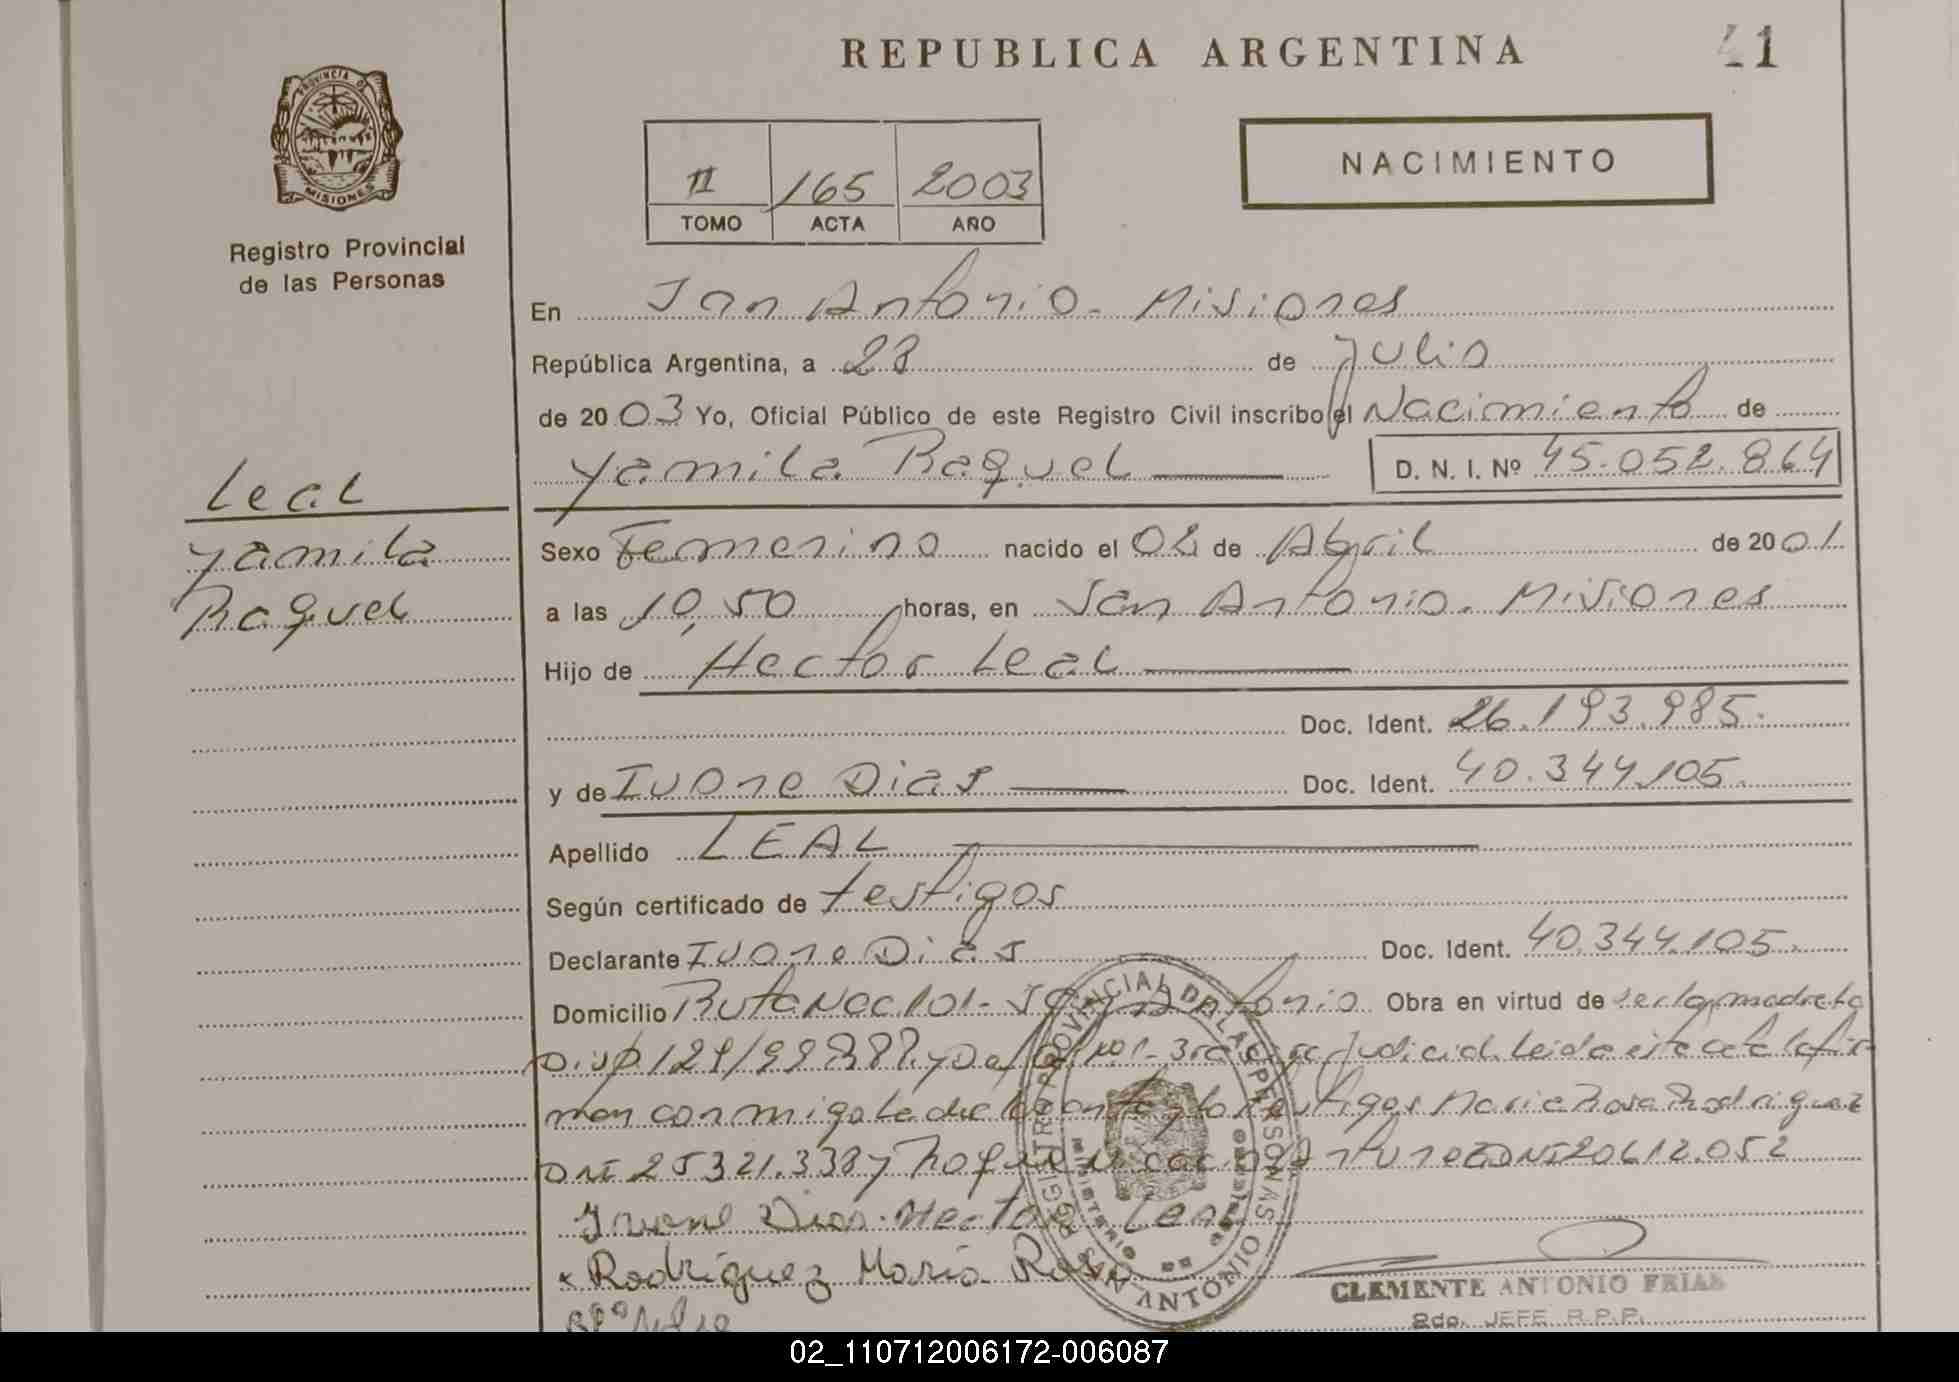 REPUBLICA ARGENTINA
41
PROVINCIA DE
MISIONES
Registro Provincial
de las Personas
II 165 2003
TOMO ACTA AÑO
NACIMIENTO
En San Antonio - Misiones
República Argentina, a 28 de Julio
de 2003 Yo, Oficial Público de este Registro Civil inscribo el Nacimiento de
Yamila Raquel D. N. I. Nº 45.052.864
Leal
Yamila
Raquel
Sexo Femenino nacido el 02 de Abril de 2001
a las 10,50 horas, en San Antonio. Misiones
Hijo de Hector Leal
Doc. Ident. 26.193.985.
y de Ivone Dias Doc. Ident. 40.344.105.
Apellido LEAL
Según certificado de testigos
Declarante Ivone Dias Doc. Ident. 40.344.105.
Domicilio Ruta Nac 101 - San Antonio Obra en virtud de ser la madre
Disp 129/99 Judicial. Leida este acta la fir
man conmigo la declarante y lo testigos Maria Rosa Rodriguez
DNI 25321.338 y DNI 20612.052
Ivone Dias. Hector Leal
x Rodríguez María Rosa
REGISTRO PROVINCIAL DE LAS PERSONAS
SAN ANTONIO
CLEMENTE ANTONIO FRIAS
2do. JEFE R.P.P.
02_110712006172-006087